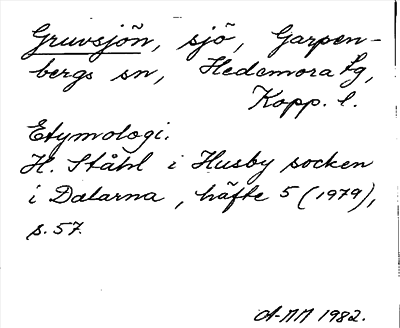 Gruvsjön, sjö, Garpen-
bergs sn, Hedemora tg,
Kopp. l.
Etymologi.
H. Ståhl i Husby socken
i Dalarna, häfte 5 (1979),
s. 57.
A-MM 1982.